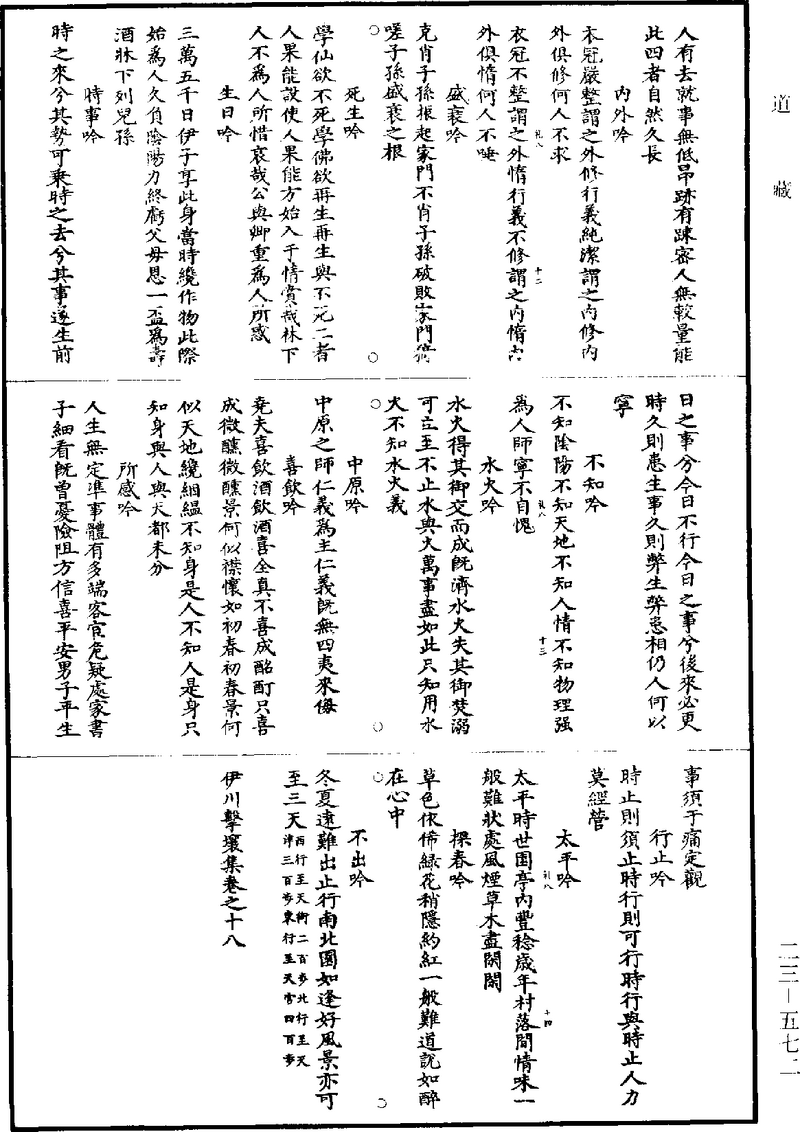 道藏
人有去就事無低昂跡有踈密人無較量能
此四者自然久長
內外吟
衣冠嚴整謂之外修行義純潔謂之內修內
外俱修何人不求
衣冠不整謂之外惰行義不修謂之內惰內
外俱惰何人不唾
盛衰吟
克肖子孫振起家門不肖子孫破敗家門猗
嗟子孫盛衰之根
死生吟
學仙欲不死學佛欲再生再生與不死二者
人果能設使人果能方始入于情賞哉林下
人不為人所惜哀哉公與卿重為人所惑
生日吟
三萬五千日伊予享此身當時纔作物此際
始為人久負陰陽力終虧父母恩一盃為壽
酒牀下列兒孫
時事吟
時之來兮其勢可乘時之去兮其事遂生前
日之事兮今日不行今日之事兮後來必更
時久則患生事久則弊生弊患相仍人何以
寧
不知吟
不知陰陽不知天地不知人情不知物理强
為人師寧不自愧
水火吟
水火得其御交而成既濟水火失其御焚溺
可立至不止水與火萬事盡如此只知用水
火不知水火義
中原吟
中原之師仁義為主仁義既無四夷來侮
喜飲吟
堯夫喜飲酒飲酒喜全真不喜成酩酊只喜
成微醺微醺景何似襟懷如初春初春景何
似天地纔絪縕不知身是人不知人是身只
知身與人與天都未分
所感吟
人生無定準事體有多端客宦危疑處家書
子細看既曾憂險阻方信喜平安男子平生
事須于痛定觀
行止吟
時止則須止時行則可行時行與時止人力
莫經營
太平吟
太平時世園亭內豐稔歲年村落間情味一
般難狀處風煙草木盡閑閑
探春吟
草色依稀綠花梢隱約紅一般難道說如醉
在心中
不出吟
冬夏遠難出止行南北園如逢好風景亦可
至三天西行至天街二百步北行至天
津三百步東行至天宮四百步
伊川擊壤集卷之十八
礼八
十二
礼八
十三
礼八
十四
二三—五七二